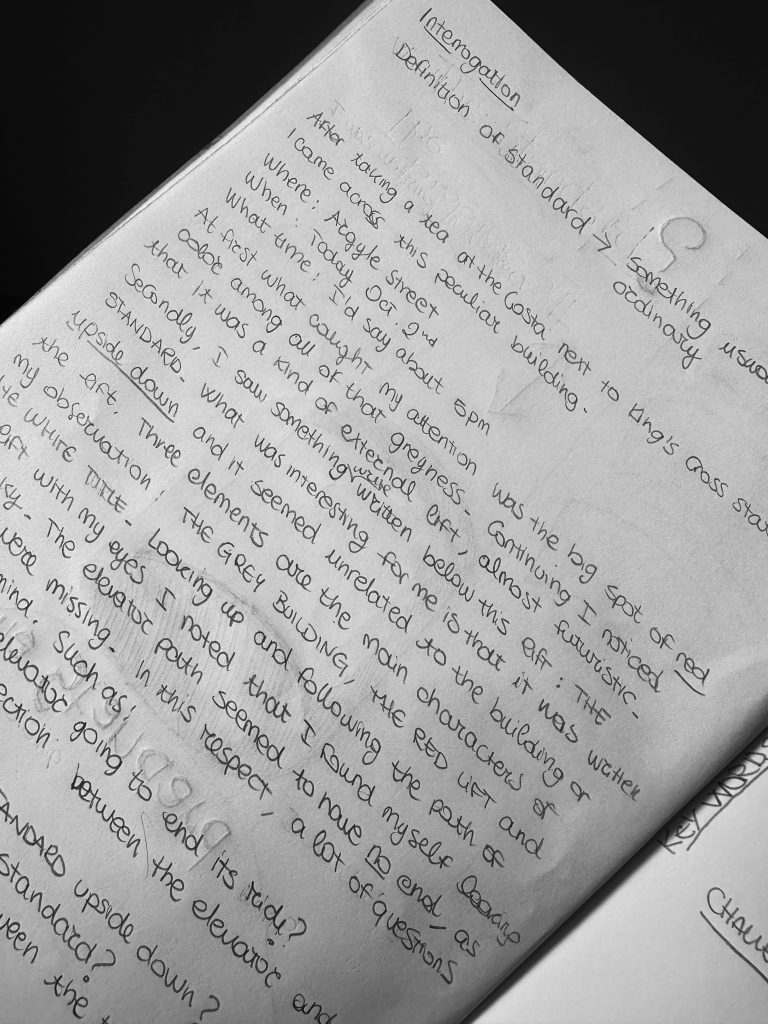 Interrogation
Definition of standard → something usual
ordinary
After taking a tea at the Costa next to King's Cross
I came across this peculiar building.
Where: Argyle Street
When: Today Oct. 2nd
What time: I'd say about 5pm
At first what caught my attention was the big spot of red
color among all of that greyness. Continuing I noticed
that it was a kind of external lift, almost futuristic.
Secondly, I saw something were written below this lift: THE
STANDARD. What was interesting for me is that it was written
upside down and it seemed unrelated to the building or
the lift. Three elements are the main characters of
my observation: THE GREY BUILDING, THE RED LIFT and
WHITE TITLE. Looking up and following the path of
with my eyes I noted that I found myself looking
The elevator path seemed to have no end, as
were missing. In this respect, a lot of questions
Such as:
elevator going to end its ride?
between the elevator and
STANDARD upside down?
standard?
the
KEY WORDS